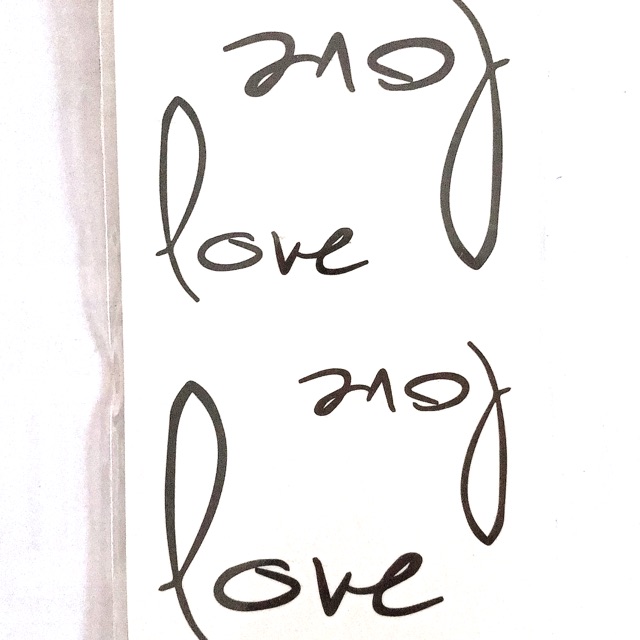 love
love
love
love